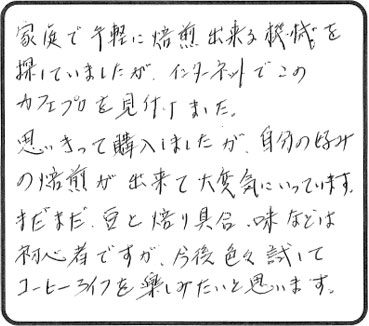 家庭で手軽に焙煎出来る機械を
探していましたが、インターネットでこの
カフェプロを見付けました。
思いきって購入しましたが、自分の好み
の焙煎が出来て大変気にいっています。
まだまだ、豆と焙り具合、味などは
初心者ですが、今後色々試して
コーヒーライフを楽しみたいと思います。